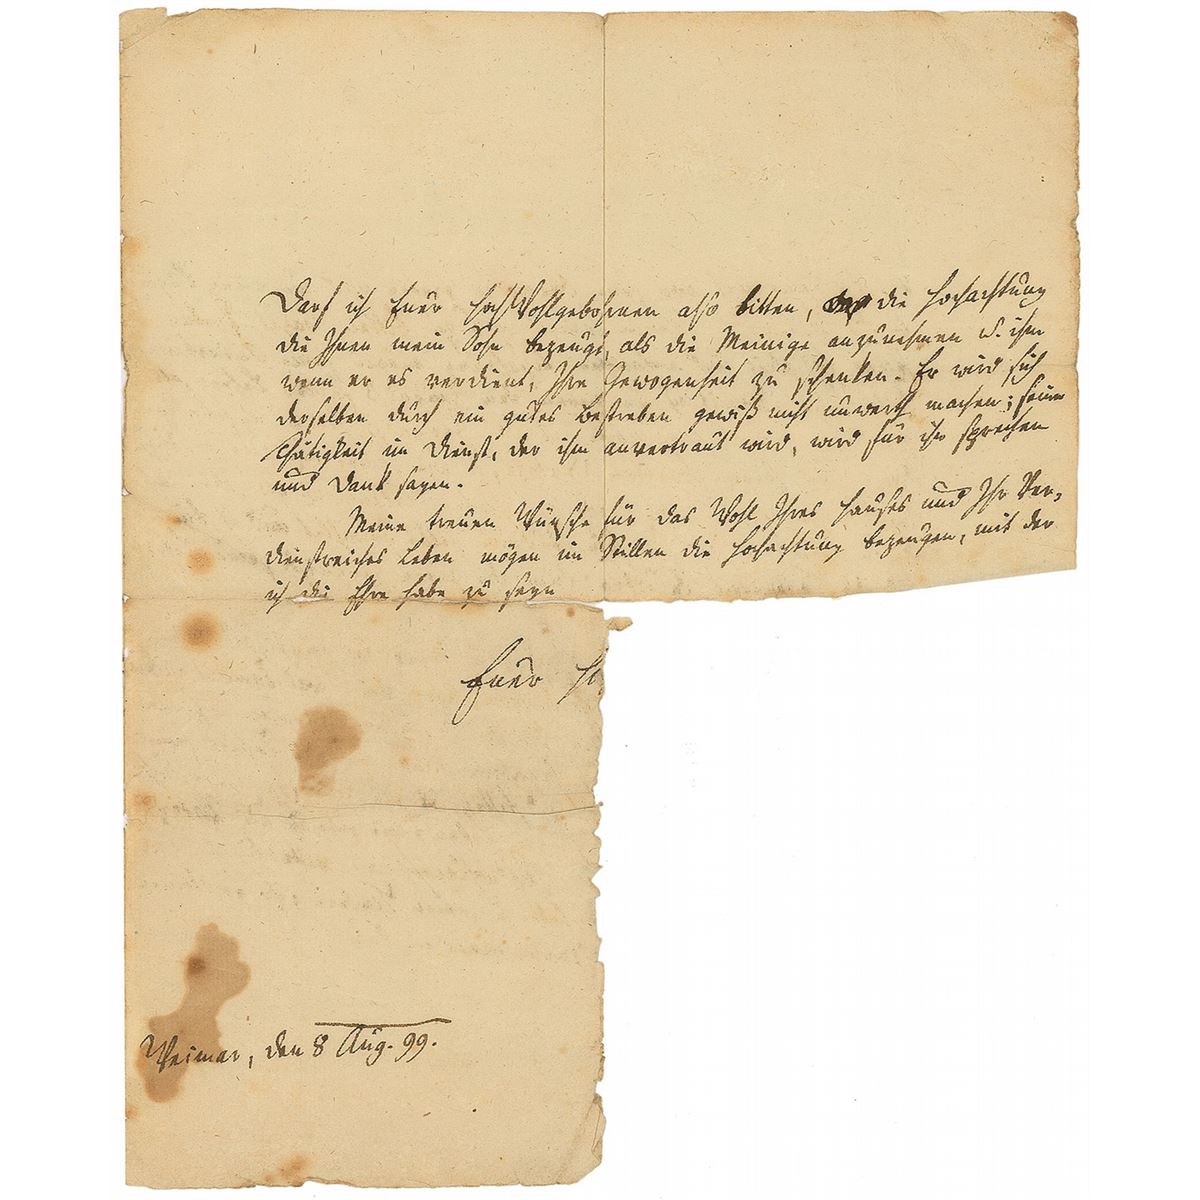 Darf ich Euer HochWohlgebohrnen also bitten, die Hochachtung
die Ihnen mein Sohn bezeugt, als die Meinige anzunehmen u. ihm
wenn er es verdient, Ihre Gewogenheit zu schenken. Er wird sich
derselben durch ein gutes Bestreben gewiß nicht unwerth machen; seine
Thätigkeit im Dienst, der ihm anvertraut wird, wird für ihn sprechen
und Dank sagen.
Meine treuen Wünsche für das Wohl Ihres Hauses und Ihr Ver-
dienstreiches Leben mögen im Stillen die Hochachtung bezeugen, mit der
ich die Ehre habe zu seyn
Euer
Weimar, den 8 Aug. 99.